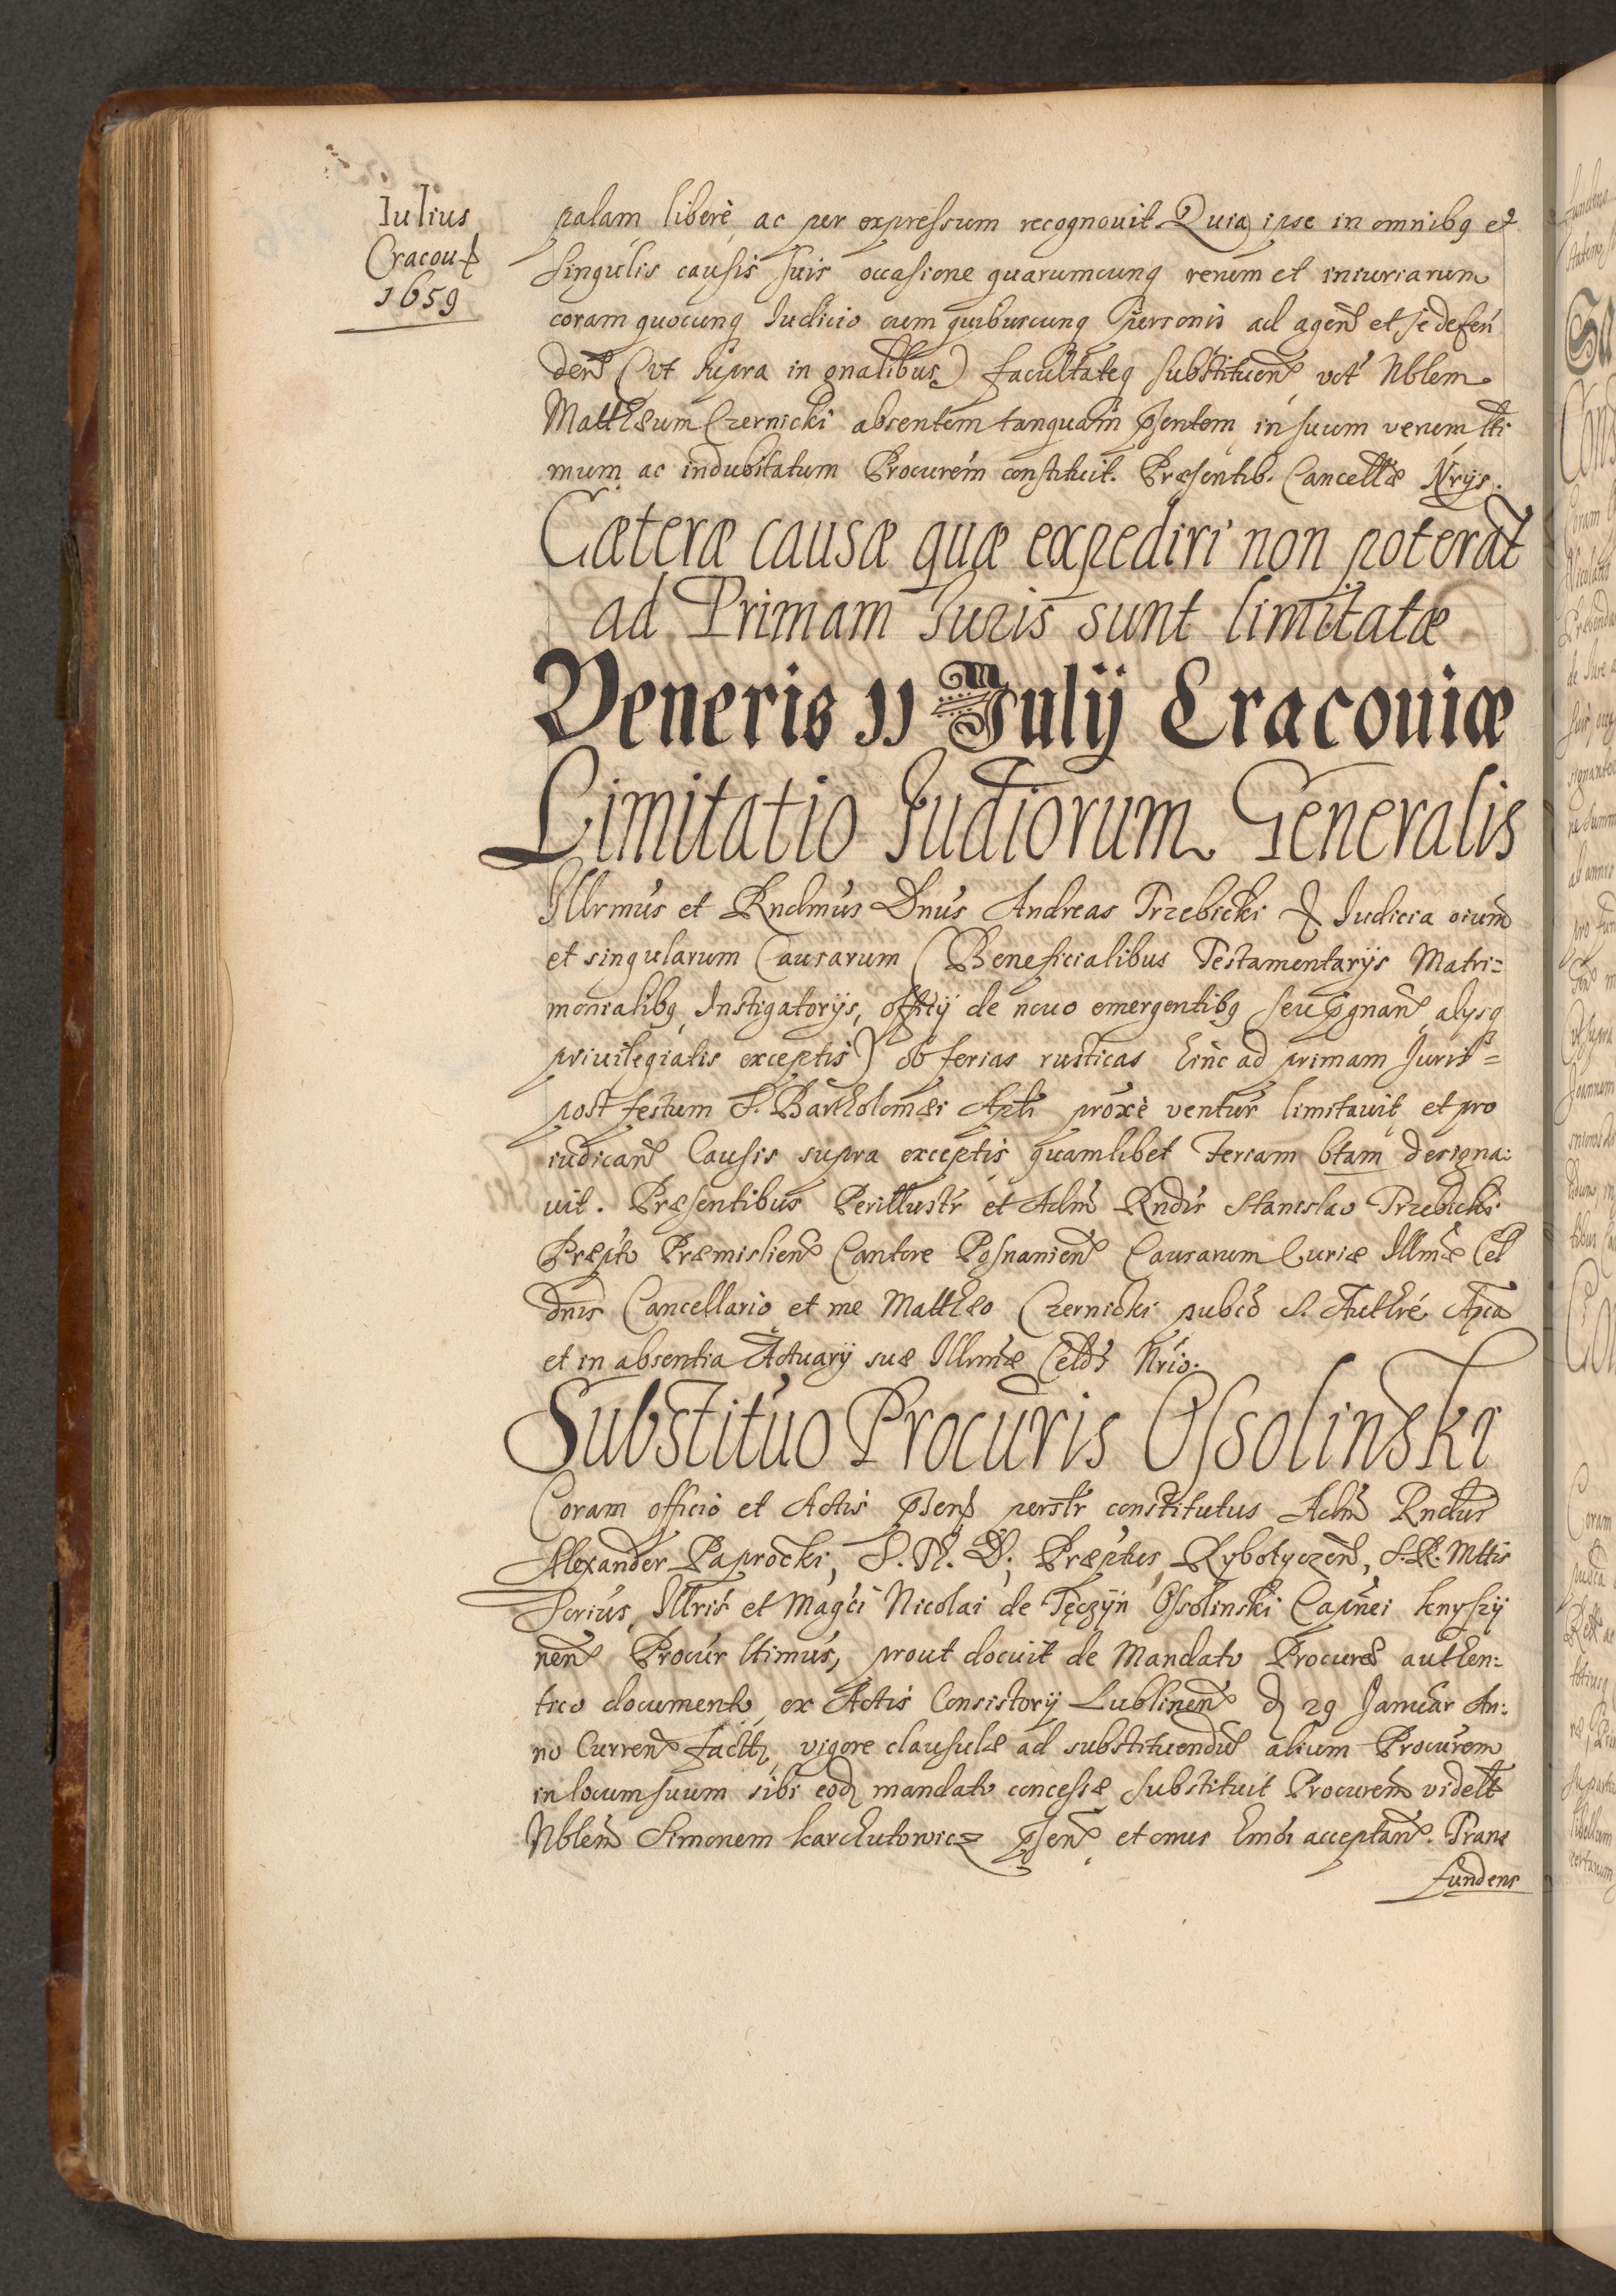 Iulius
Cracou
1659
palam liberè ac per expressum recognouit. Quia ipse in omnibq et
singulis causis suis occasione quarumcunq rerum et iniuriarum
coram quocunq Iudicio cum quibuscunq personis ad agend et se defen
dend (vt supra in gnalibus) facultateq substituend vct Nblem
Matthæum Czernicki absentem tanquam psentem in suum verum ltti
mum ac indubitatum Procurem constituit. Præsentib. Cancellæ Nrijs.
Cæteræ causæ quæ expediri non poterāt
ad Primam Iuris sunt limitatæ
Veneris 11 Iulij Cracouiæ
Limitatio Judiorum Generalis
Illrmus et Rndmus Dnus Andreas Trzebicki Iudicia oium
et singularum Causarum (Beneficialibus Testamentarijs Matri=
monialibq Instigatorijs, officij de nouo emergentibq seu pgnand alysq
priuilegialis exceptis) ob ferias rusticas hinc ad primam Juris=
post festum S. Bartholomæi Apti proxè ventur limitauit et pro
iudicand Causis supra exceptis quamlibet feriam btam designa:
uit. Præsentibus Perillustr et Adm Rndis Stanislao Trzebicki
Præpto Præmislien Cantore Posnanien Causarum Curiæ Illmæ Cel
dnis Cancellario et me Matthæo Czernicki pubco S. Authre Apca
et in absentia Actuarij suæ Illmæ Celdis Nrio.
Substituo Procuris Ossolinski
Coram officio et Actis psen perstr constitutus Adm Rndus
Alexander Paprocki, S. R. D. Præptus Rybotyczen, S. R. Mttis
Scrius, Illris et Magci Nicolai de Tęczyn Ossolinski Capnei knyszy
nen Procur ltimus, prout docuit de Mandato Procured authen:
tico documento ex Actis Consistorij Lublinen d 29 Januar An:
no Curren facti, vigore clausulæ ad substituendu alium Procurem
in locum suum sibi eod mandato concessæ substituit Procurem videlt
Nblem Simonem karchutowicz psen et onus hmoi acceptan. Trans
fundens